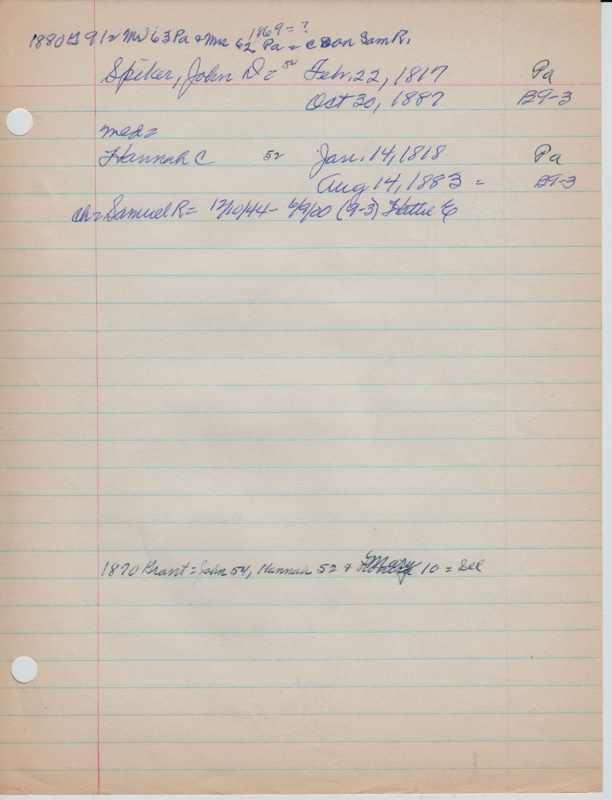 1869 = ?
1880 G 91 = Mr 63 Pa + Mrs 62 Pa = c Son Sam R.
Spiker, John D = 54 Feb. 22, 1817 Pa
Oct 30, 1887 B9-3
med =
Hannah C 52 Jan. 14, 1818 Pa
Aug 14, 1883 = B9-3
ch = Samuel R = 12/10/44 - 6/9/20 (9-3) Hattie E
1870 Grant = John 54, Hannah 52 + Mary 10 = Ill